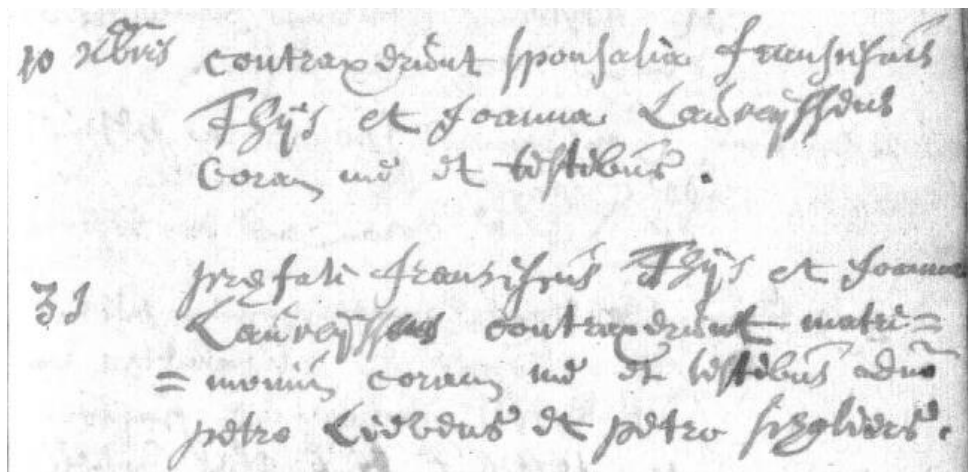 10 Xbris contraxerunt sponsalia Franciscus
Thijs et Joanna Laureijssens
Coram me et testibus.
31 prefati Franciscus Thijs et Joanna
Laureijssens contraxerunt matri=
=monium coram me et testibus dno
petro Lievens et petro